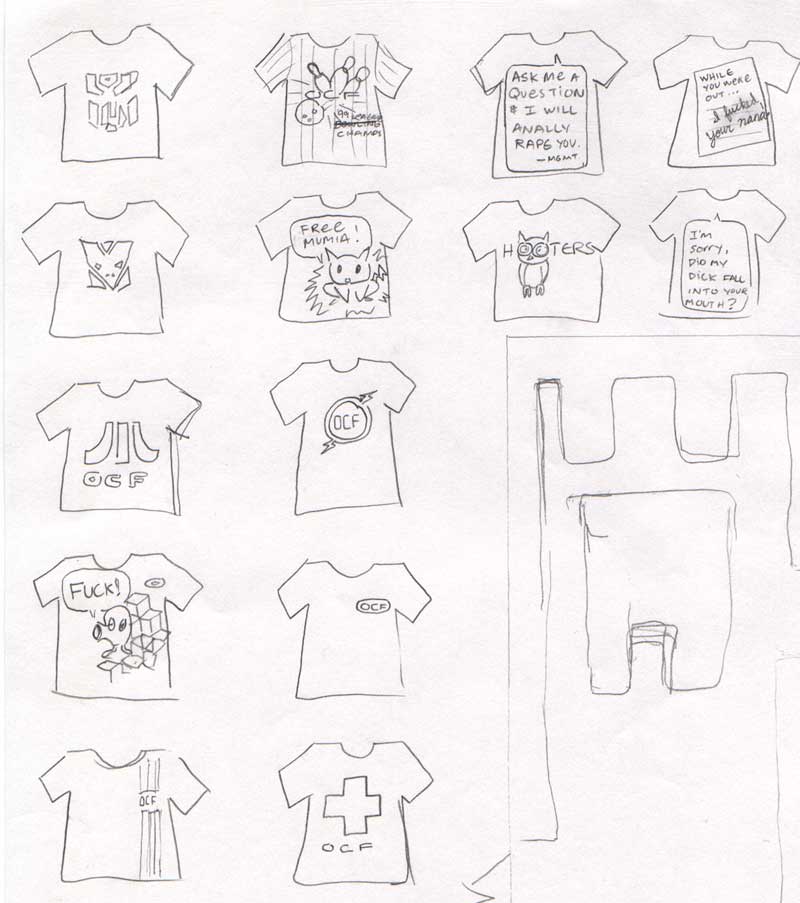 OCF
'99 LEAGUE
BOWLING
CHAMPS
ASK ME A
QUESTION
& I WILL
ANALLY
RAPE YOU.
—MGMT
WHILE
YOU WERE
OUT...
I fucked
your nana
FREE
MUMIA!
HOOTERS
I'M
SORRY,
DID MY
DICK FALL
INTO YOUR
MOUTH?
OCF
OCF
FUCK!
OCF
OCF
OCF